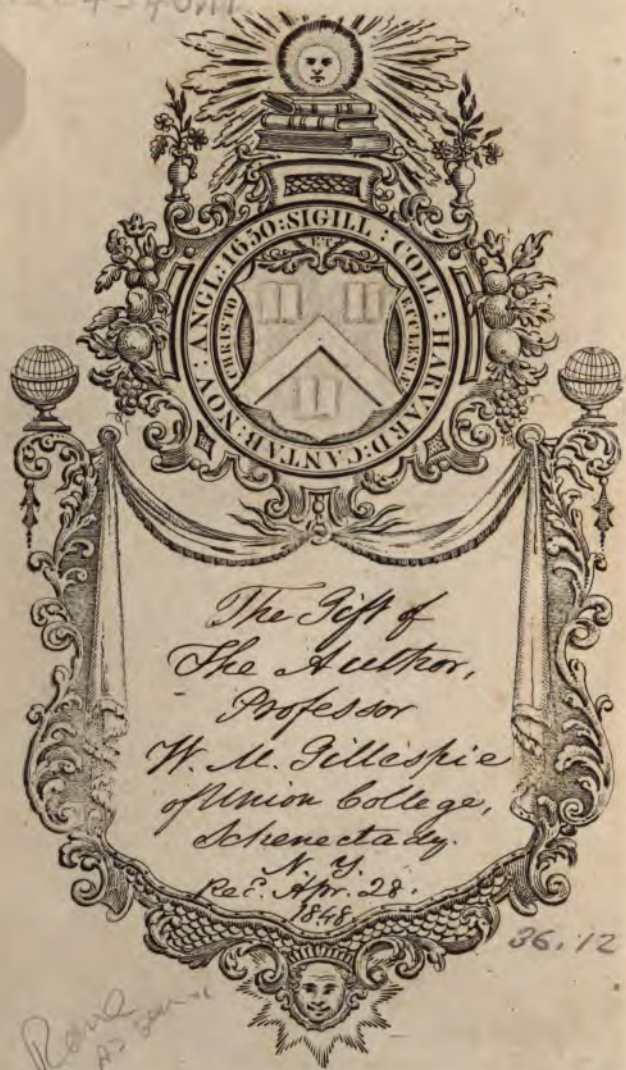 SIGILL : COLL : HARVARD : CANTAB : NOV : ANGL : 1650 :
CHRISTO ET ECCLESIÆ
The Gift of
The Author,
Professor
W. M. Gillespie
of Union College,
Schenectady.
N. Y.
Rec. Apr. 28.
1848.
36.12
Rome